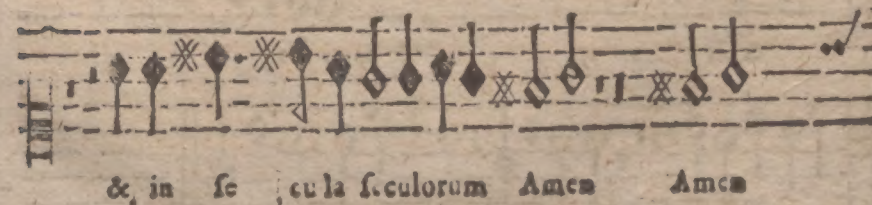 & in se cula seculorum Amen Amen